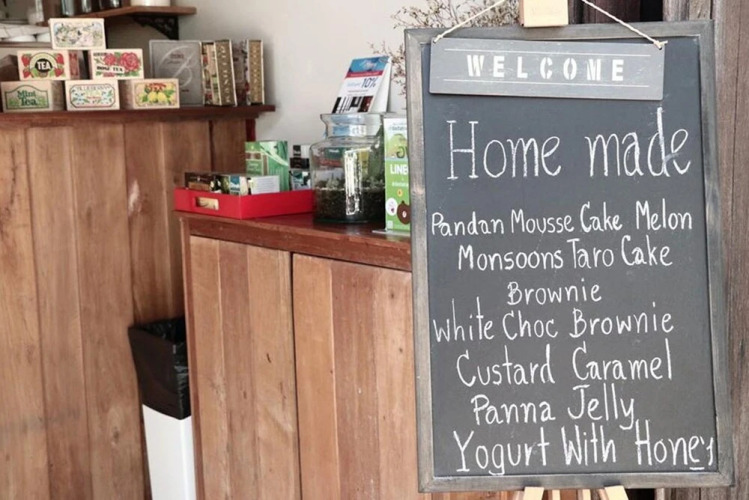 WELCOME
Home made
Pandan Mousse Cake Melon
Monsoons Taro Cake
Brownie
White Choc Brownie
Custard Caramel
Panna Jelly
Yogurt With Honey
TEA
Mint
Tea
10%
LINE